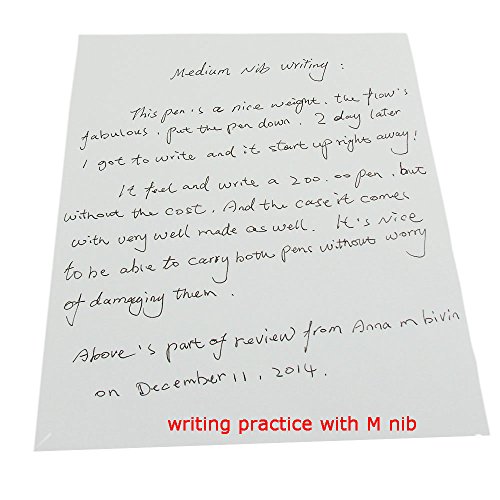 Medium Nib Writing :
This pen is a nice weight. the flow's
fabulous. put the pen down. 2 day later
I got to write and it start up right away!
It feel and write a 200.00 pen. but
without the cost. And the case it comes
with very well made as well. It's nice
to be able to carry both pens without worry
of damaging them.
Above's part of review from Anna m bivin
on December 11, 2014.
writing practice with M nib